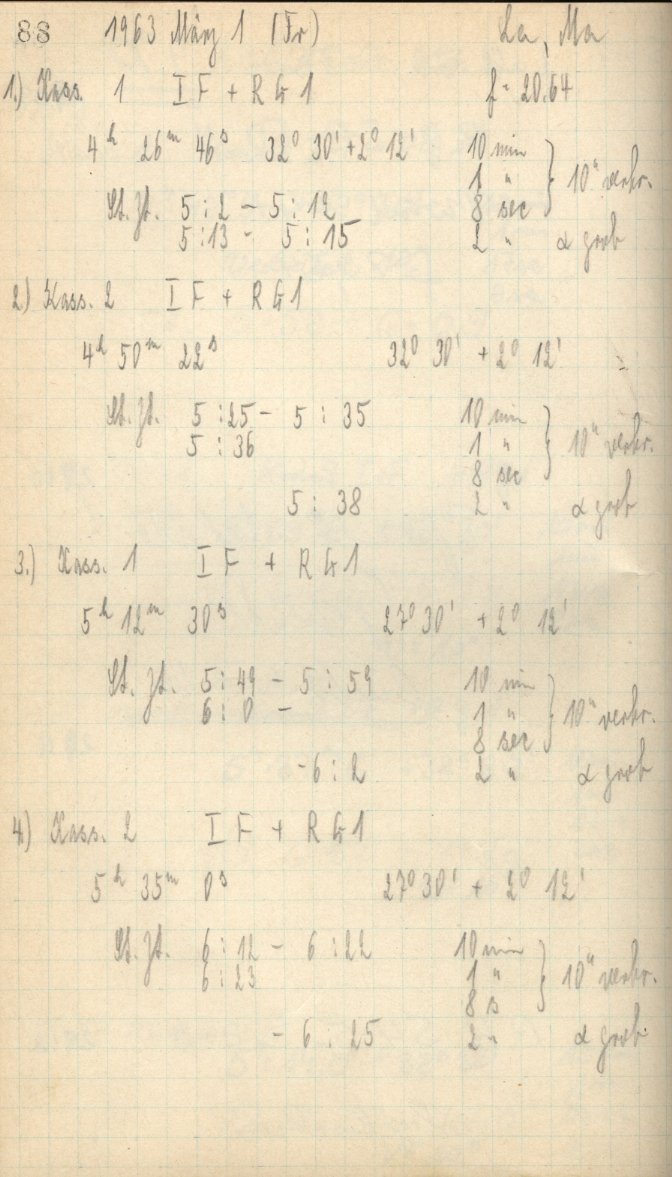 88 1963 März 1 (Fr) La, Ma
1.) Kass. 1 I F + R G 1 f = 20.64
4ʰ 26ᵐ 46ˢ 32° 30' + 2° 12' 10 min
1 " } 10" verkr.
St. Zt. 5 : 2 – 5 : 12 8 sec
5 : 13 – 5 : 15 2 " α grob
2) Kass. 2 I F + R G 1
4ʰ 50ᵐ 22ˢ 32° 30' + 2° 12'
St. Zt. 5 : 25 – 5 : 35 10 min
5 : 36 1 " } 10" verkr.
8 sec
5 : 38 2 " α grob
3.) Kass. 1 I F + R G 1
5ʰ 12ᵐ 30ˢ 27° 30' + 2° 12'
St. Zt. 5 : 49 – 5 : 59 10 min
6 : 0 – 1 " } 10" verkr.
8 sec
– 6 : 2 2 " α grob
4.) Kass. 2 I F + R G 1
5ʰ 35ᵐ 0ˢ 27° 30' + 2° 12'
St. Zt. 6 : 12 – 6 : 22 10 min
6 : 23 1 " } 10" verkr.
8 s
– 6 : 25 2 " α grob